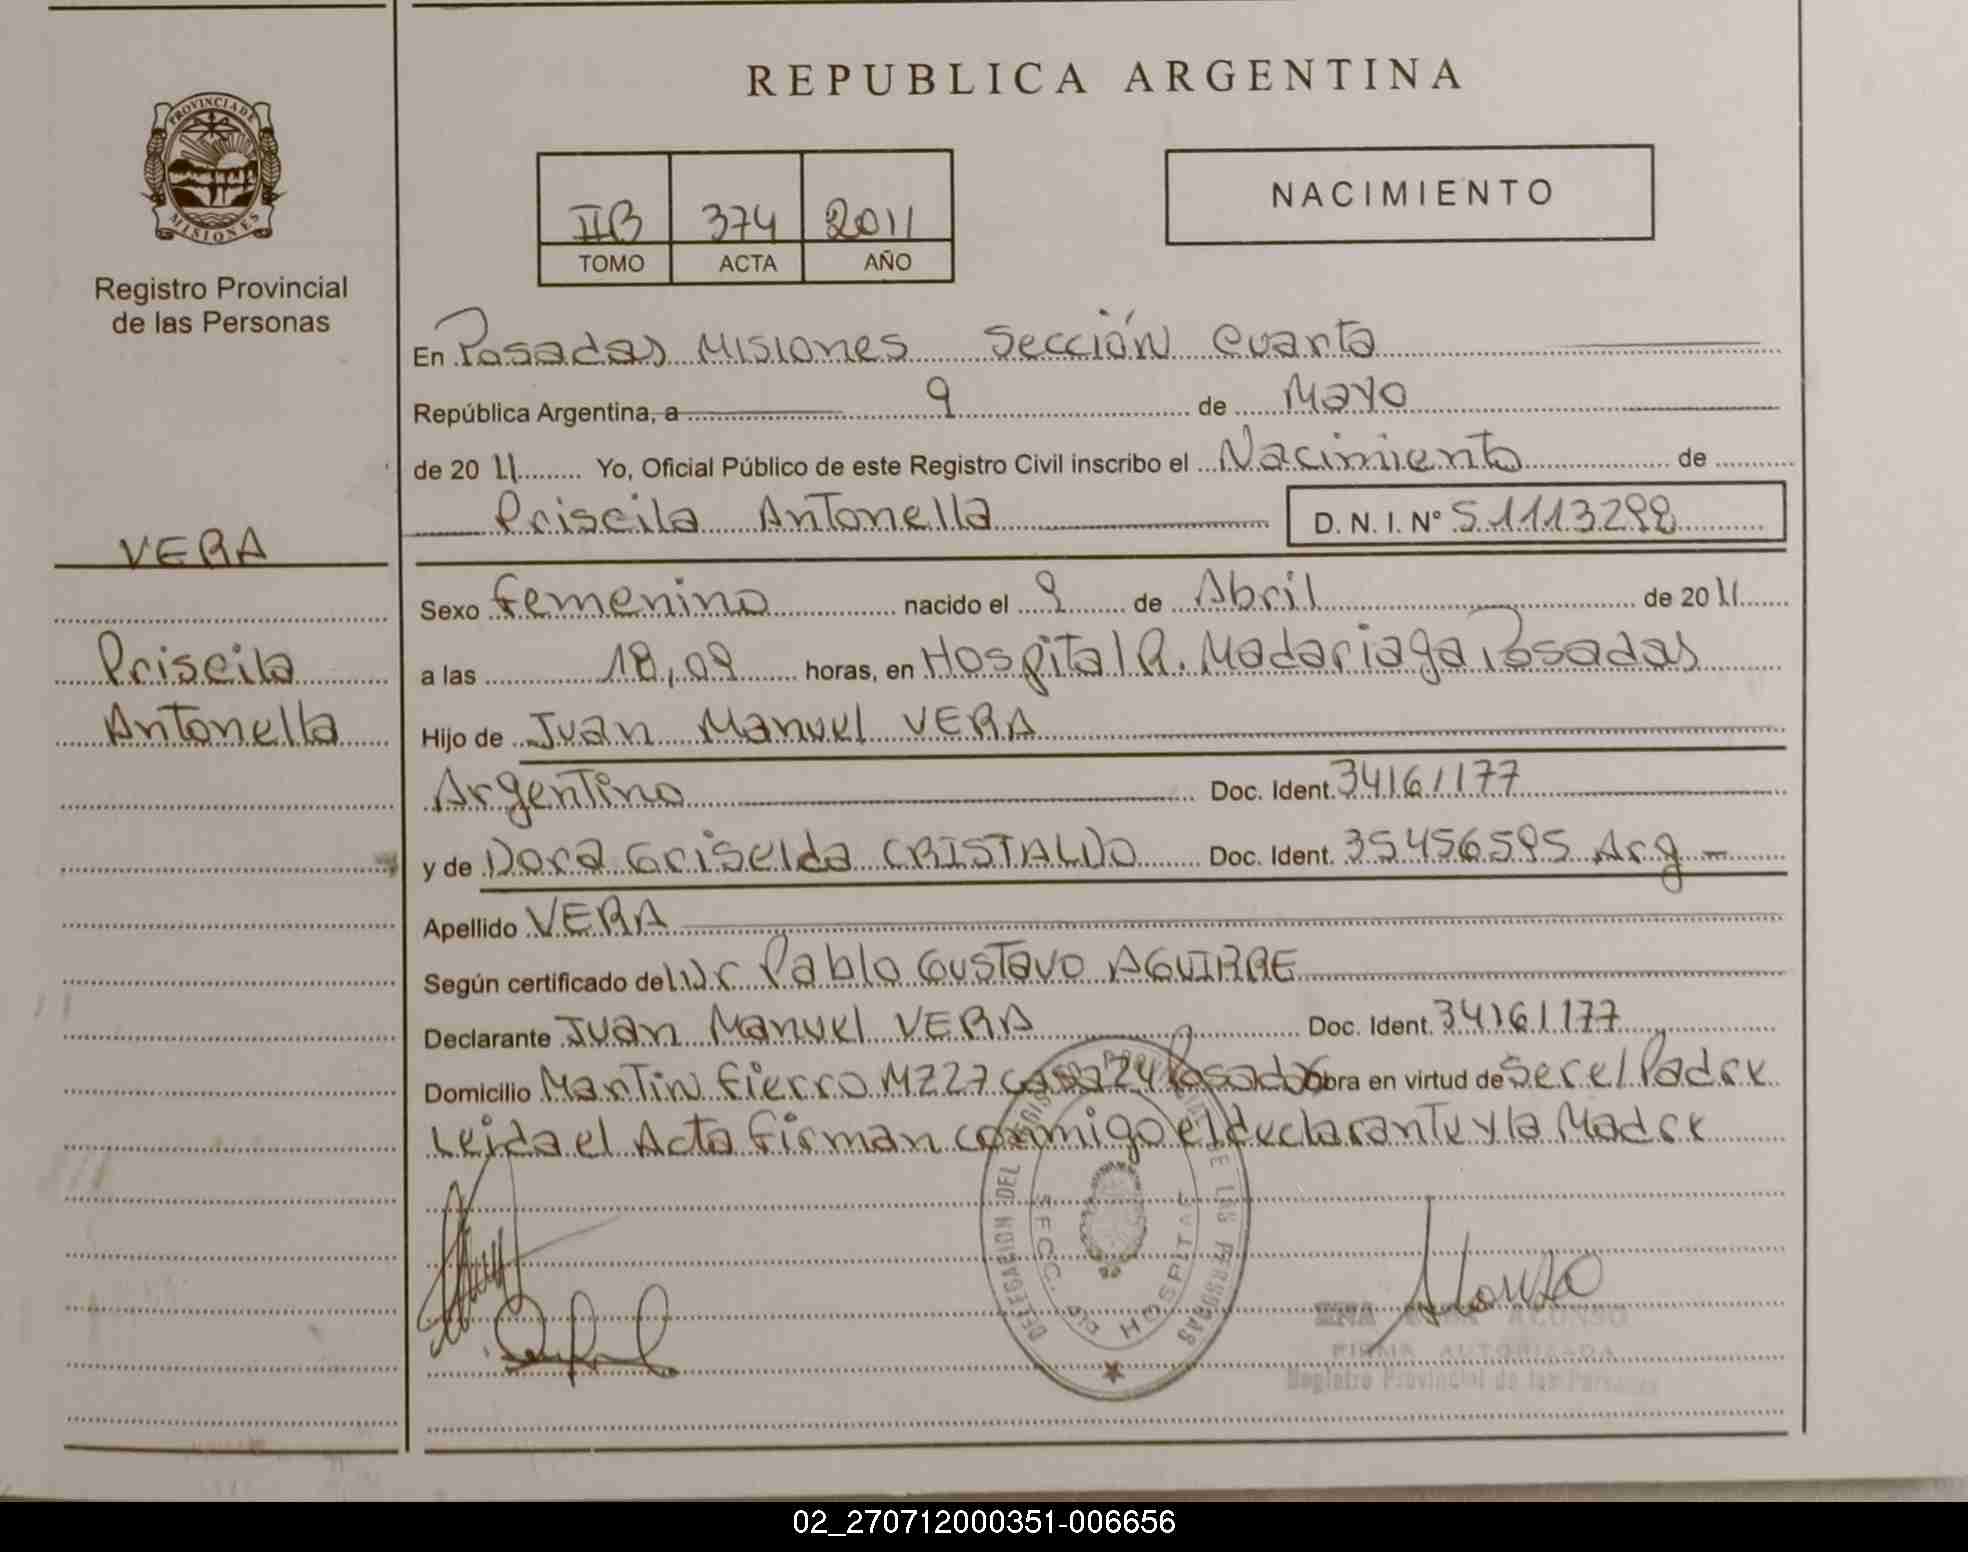 REPUBLICA ARGENTINA
PROVINCIA DE
MISIONES
Registro Provincial
de las Personas
IIB 374 2011
TOMO ACTA AÑO
NACIMIENTO
En Posadas Misiones Sección Cuarta
República Argentina, a 9 de Mayo
de 20 11 Yo, Oficial Público de este Registro Civil inscribo el Nacimiento de
Priscila Antonella D. N. I. N° 51113298
VERA
Priscila
Antonella
Sexo femenino nacido el 9 de Abril de 20 11
a las 18,09 horas, en Hospital R. Madariaga Posadas
Hijo de Juan Manuel VERA
Argentino Doc. Ident. 34161177
y de Dora Griselda CRISTALDO Doc. Ident. 35456595 Arg -
Apellido VERA
Según certificado del Dr Pablo Gustavo AGUIRRE
Declarante Juan Manuel VERA Doc. Ident. 34161177
Domicilio Mantin fierro MZ27 casa 24 Posadas Obra en virtud de Ser el Padre
Leida el Acta firman conmigo el declarante y la Madre
DELEGACION DEL REGISTRO DE LAS PERSONAS
SECC. HOSPITAL
Alonso
ALONSO
FIRMA AUTORIZADA
Registro Provincial de las Personas
02_270712000351-006656